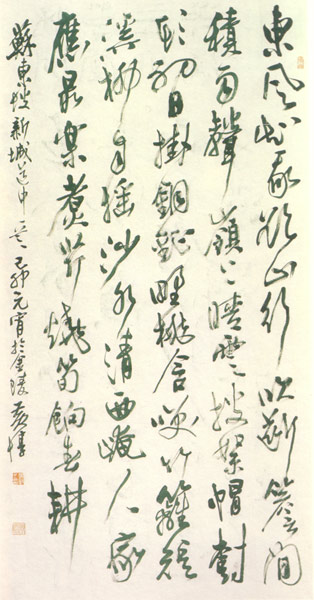 東風知我欲山行吹斷簷間
積雨聲嶺上晴雲披絮帽樹
頭初日掛銅鉦野桃含笑竹籬短
溪柳自搖沙水清西崦人家
應最樂煮芹燒筍餉春耕
蘇東坡新城道中 己卯元宵於金陵